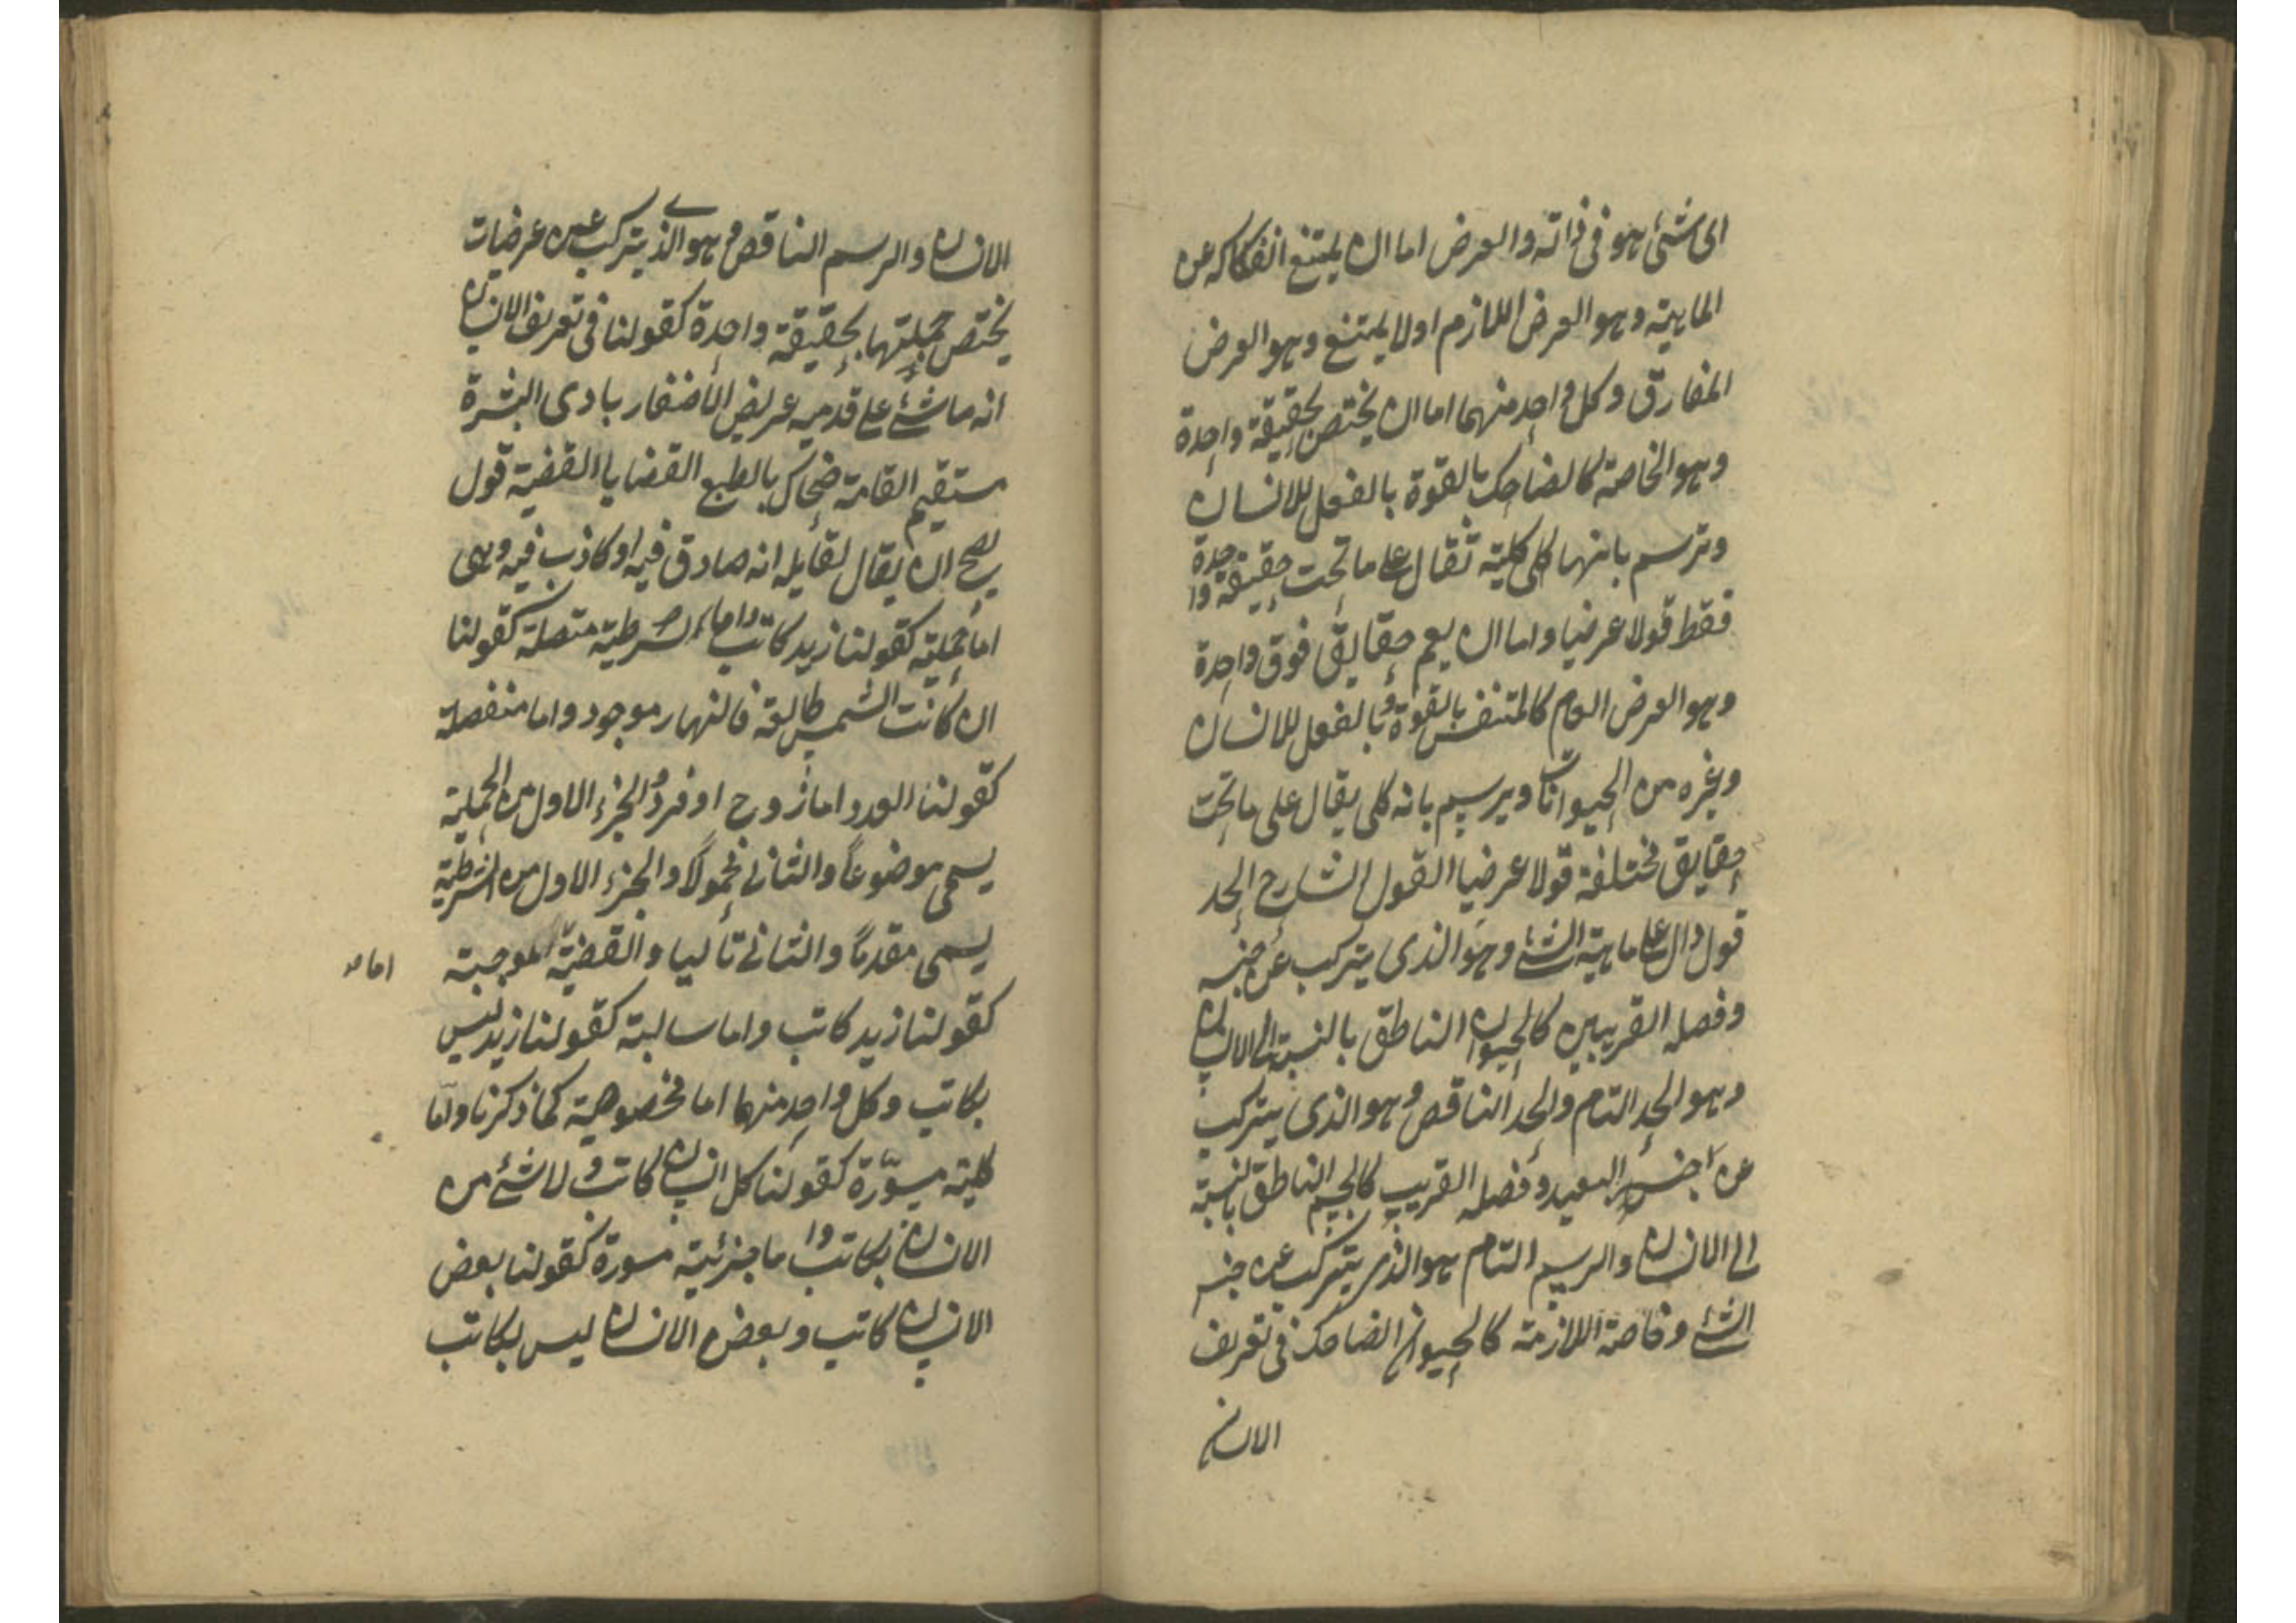 اى شئ هو فى ذاته والعرض اما ان يمتنع انفكاكه عن
الماهية وهو العرض اللازم اولا يمتنع وهو العرض
المفارق وكل واحد منهما اما ان يختص بحقيقة واحدة
وهو الخاصة كالضاحك بالقوة بالفعل للانسان
وترسم بانها كلى كلية تقال على ما تحت حقيقة واحدة
فقط قولا عرضيا واما ان يعم حقايق فوق واحدة
وهو العرض العام كالمتنفس بالقوة وبالفعل للانسان
وغيره من الحيوانات ويرسم بانه كلى يقال على ما تحت
حقايق مختلفة قولا عرضيا القول الشارح الحد
قول دال على ماهية الشئ وهو الذى يتركب عن جنسه
وفصله القريبين كالحيوان الناطق بالنسبة الى الانسان
وهو الحد التام والحد الناقص وهو الذى يتركب
عن جنسه البعيد وفصله القريب كالجسم الناطق بالنسبة
الى الانسان والرسم التام هو الذى يتركب عن جنس
الشئ وخاصة اللازمة كالحيوان الضاحك فى تعريف
الانسان
الانسان والرسم الناقص هو الذى يتركب عن عرضيات
يختص جملتها بحقيقة واحدة كقولنا فى تعريف الانسان
انه ماشئ على قدميه عريض الأضفار بادى البشرة
مستقيم القامة ضحاك بالطبع القضايا القضية قول
يصح ان يقال لقايله انه صادق فيه او كاذب فيه وهى
اما حملية كقولنا زيد كاتب واما شرطية متصلة كقولنا
ان كانت الشمس طالعة فالنهار موجود واما منفصلة
كقولنا العدد اما زوج او فرد والجزء الاول من الحملية
يسمى موضوعاً والثانى محمولاً والجزء الاول من الشرطية
يسمى مقدماً والثانى تاليا والقضية الموجبة
اما
كقولنا زيد كاتب واما سالبة كقولنا زيد ليس
بكاتب وكل واحد منهما اما مخصوصة كما ذكرنا واما
كلية مسوّرة كقولنا كل انسان كاتب ولا شئ من
الانسان بكاتب واما جزئية مسورة كقولنا بعض
الانسان كاتب وبعض الانسان ليس بكاتب